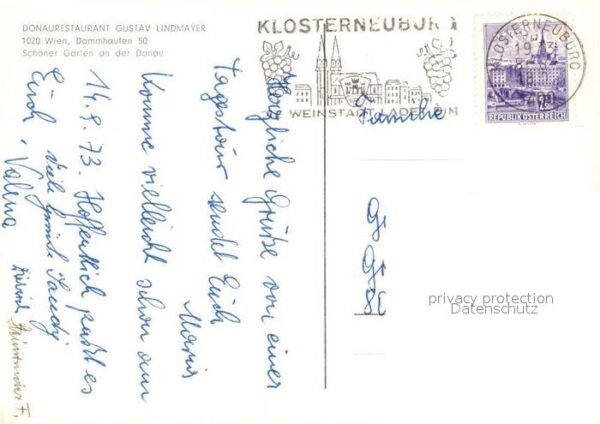 DONAURESTAURANT GUSTAV LINDMAYER
1020 Wien, Dammhaufen 50
Schöner Garten an der Donau
KLOSTERNEUBURG
WEINSTADT LADET EIN
KLOSTERNEUBURG
REPUBLIK ÖSTERREICH
Familie
Herzliche Grüße von einer
Tagstour sendet Euch
Maria
Komme vielleicht schon am
14.9.73. Hoffentlich paßt es
Euch. Viele Grüße
privacy protection
Datenschutz